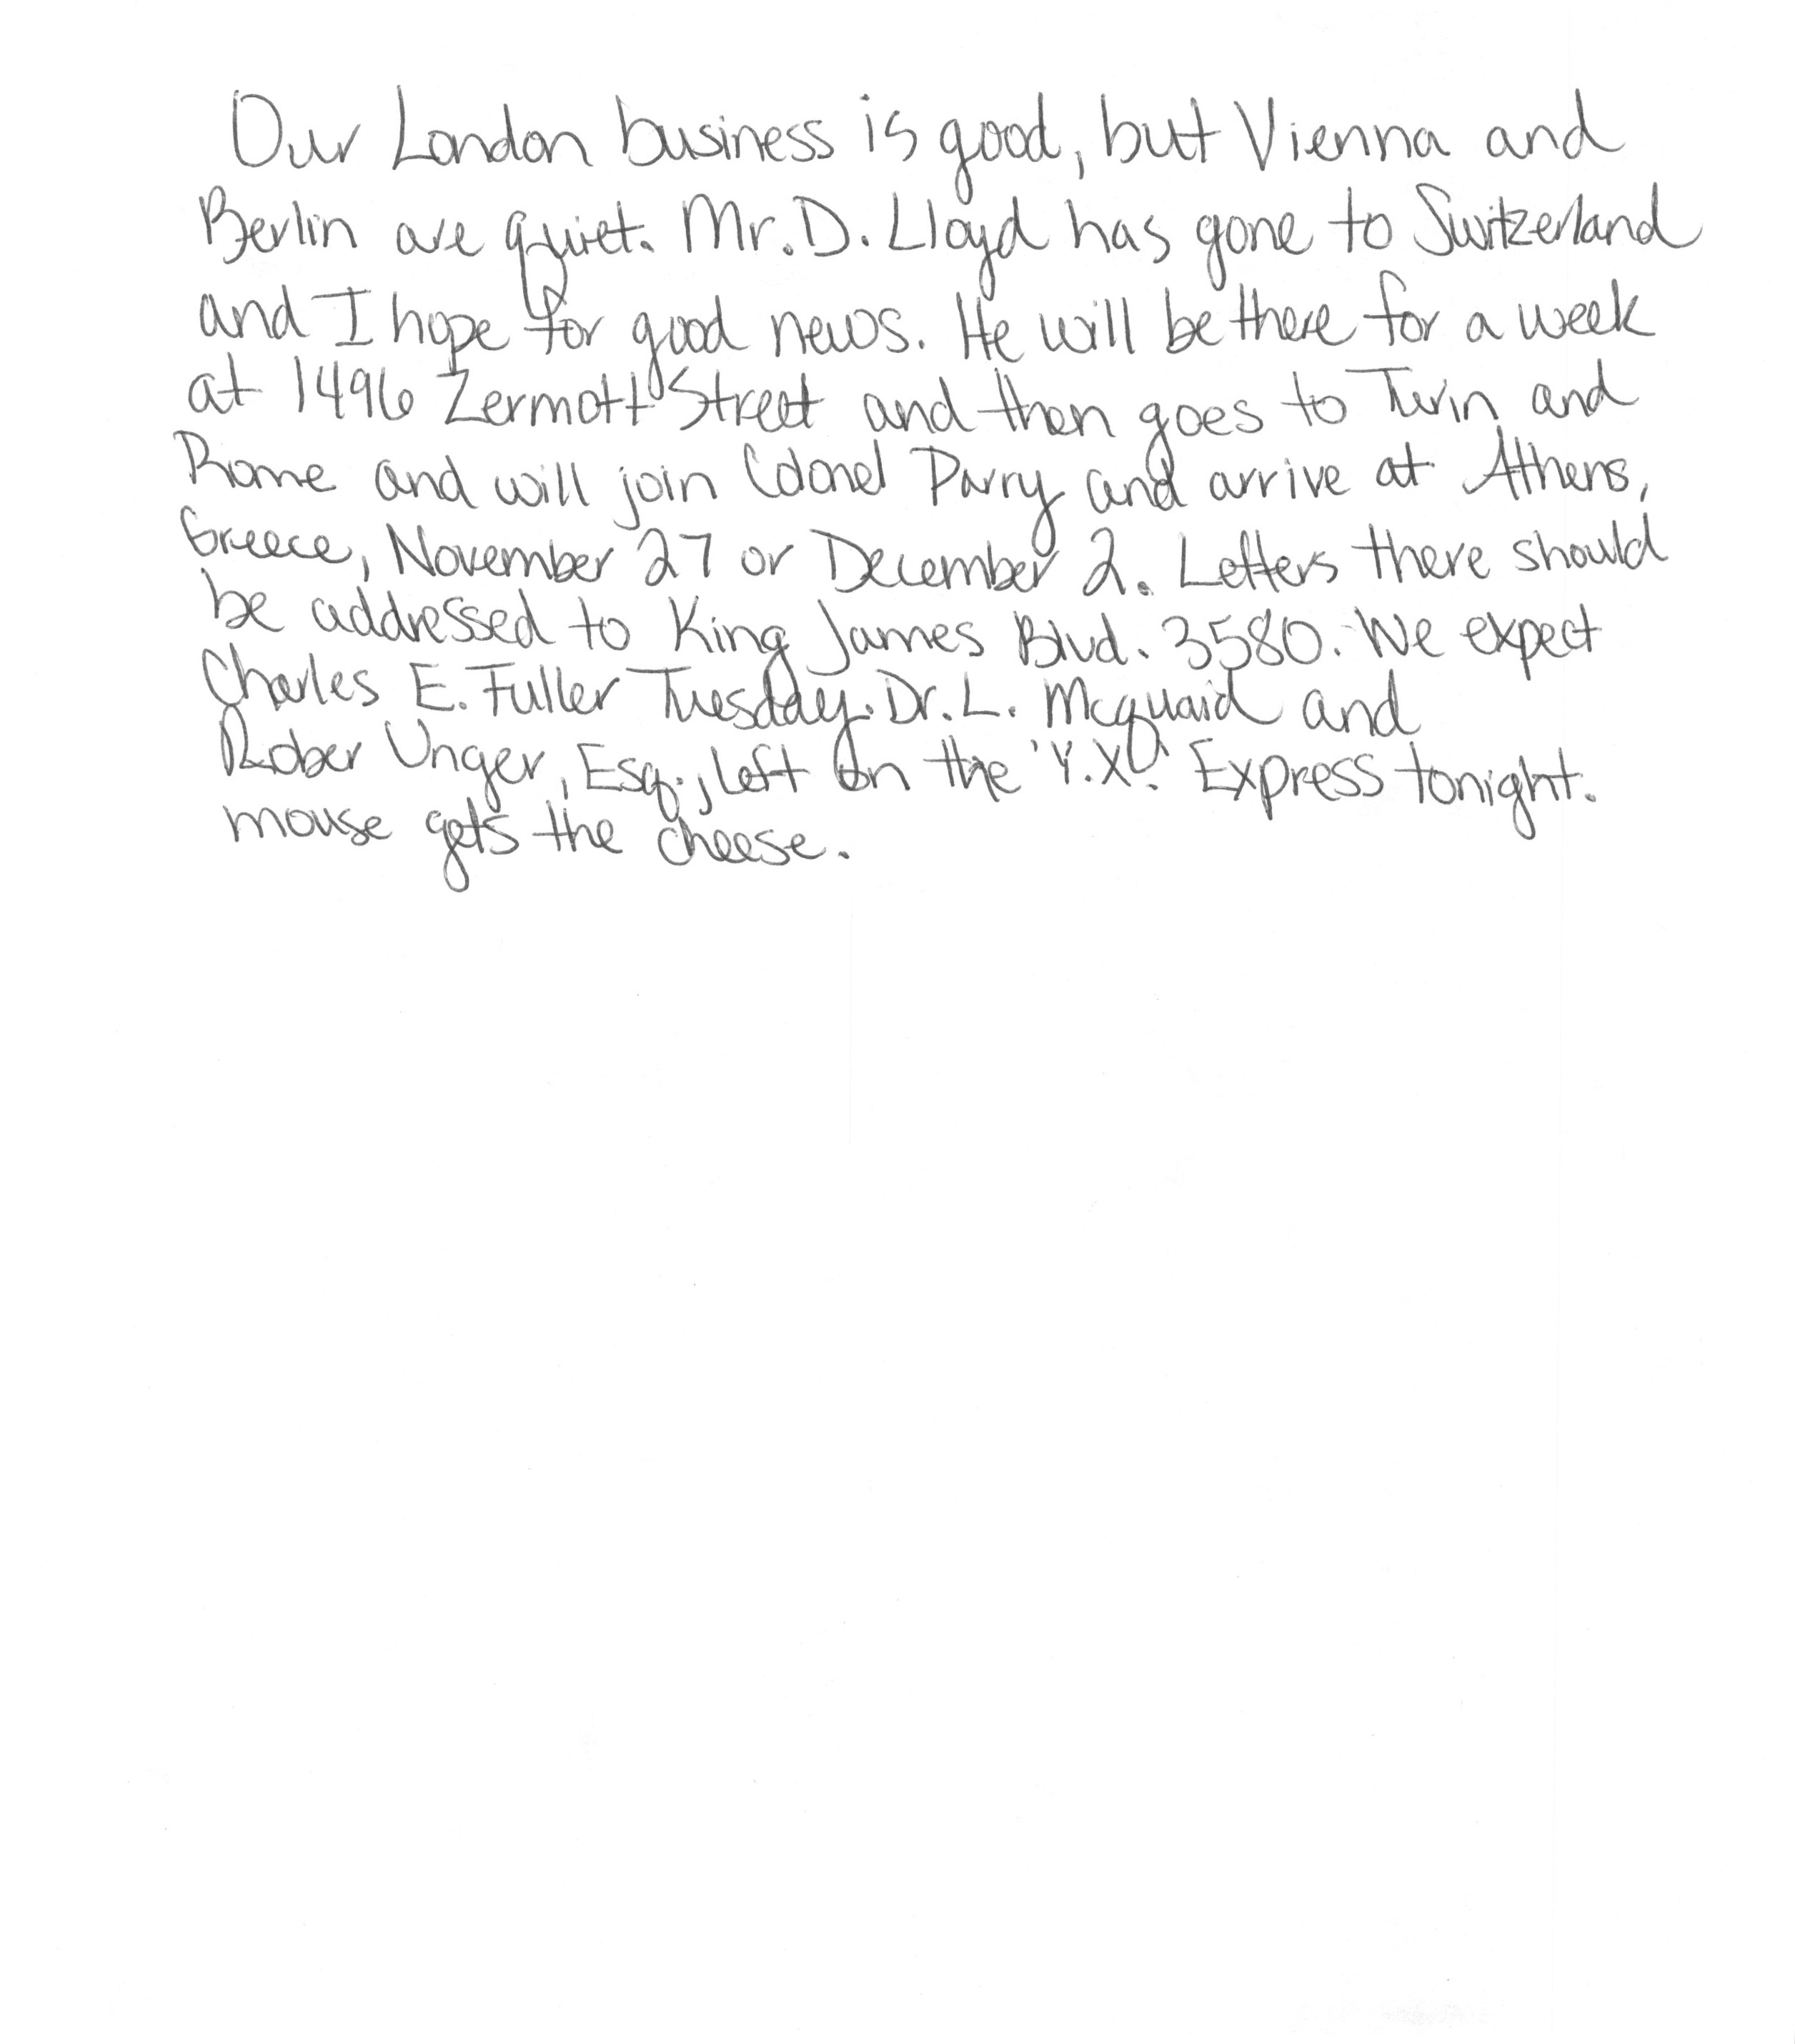 Our London business is good, but Vienna and
Berlin are quiet. Mr. D. Lloyd has gone to Switzerland
and I hope for good news. He will be there for a week
at 1496 Zermott Street and then goes to Turin and
Rome and will join Colonel Parry and arrive at Athens,
Greece, November 27 or December 2. Letters there should
be addressed to King James Blvd. 3580. We expect
Charles E. Fuller Tuesday. Dr. L. Mcquaid and
Rober Unger, Esq., left on the 'Y.X.' Express tonight.
mouse gets the cheese.